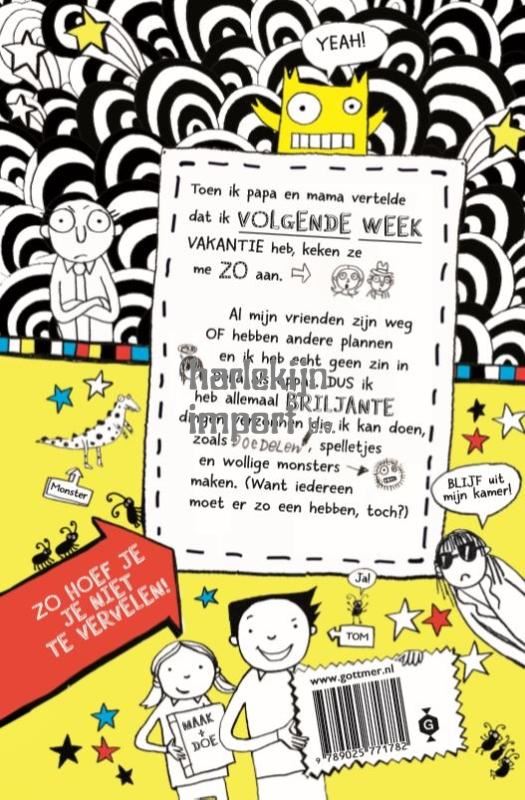 YEAH!
Toen ik papa en mama vertelde
dat ik VOLGENDE WEEK
VAKANTIE heb, keken ze
me ZO aan.
Al mijn vrienden zijn weg
OF hebben andere plannen
en ik heb echt geen zin in
DUS ik
harlekijn
heb allemaal BRILJANTE
import
dingen verzonnen die ik kan doen,
zoals DOEDELEN, spelletjes
en wollige monsters
maken. (Want iedereen
moet er zo een hebben, toch?)
Monster
BLIJF uit
mijn kamer!
ZO HOEF JE
JE NIET
TE VERVELEN!
Ja!
TOM
MAAK
+
DOE
www.gottmer.nl
G
9 789025 771782